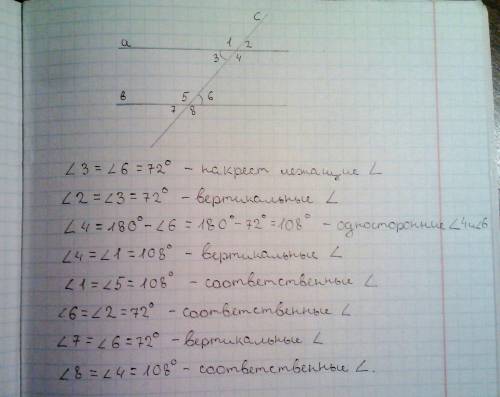 c
a
1 2
3 4
b
5 6
7 8
∠3 = ∠6 = 72° - накрест лежащие ∠
∠2 = ∠3 = 72° - вертикальные ∠
∠4 = 180° - ∠6 = 180° - 72° = 108° - односторонние ∠4и∠6
∠4 = ∠1 = 108° - вертикальные ∠
∠1 = ∠5 = 108° - соответственные ∠
∠6 = ∠2 = 72° - соответственные ∠
∠7 = ∠6 = 72° - вертикальные ∠
∠8 = ∠4 = 108° - соответственные ∠.